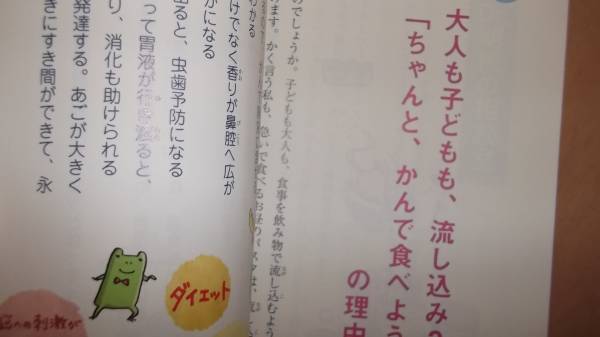 大人も子どもも、流し込み
「ちゃんと、かんで食べよう
の理由
のでしょうか。子どもも大人も、食事を飲み物で流し込むよう
ます。かく言う私も、急いで食べるお昼のパスタは、
わかる
けでなく香りが鼻腔へ広が
かになる
出ると、虫歯予防になる
って胃液が
ると、
り、消化も助けられる
発達する。あごが大きく
きにすき間ができて、永
ダイエット
への刺激が